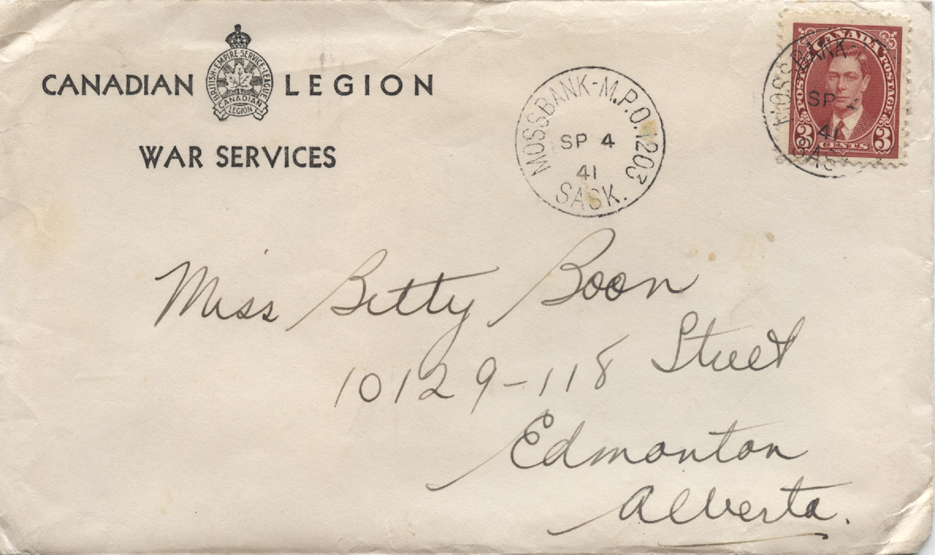 CANADIAN LEGION
BRITISH·EMPIRE·SERVICE·LEAGUE
CANADIAN
LEGION
WAR SERVICES
MOSSBANK-M.P.O.1203
SP 4
41
SASK.
MOSSBANK
SP
41
SASK
CANADA
POSTES POSTAGE
3 CENTS 3
Miss Betty Boon
10129-118 Street
Edmonton
Alberta.